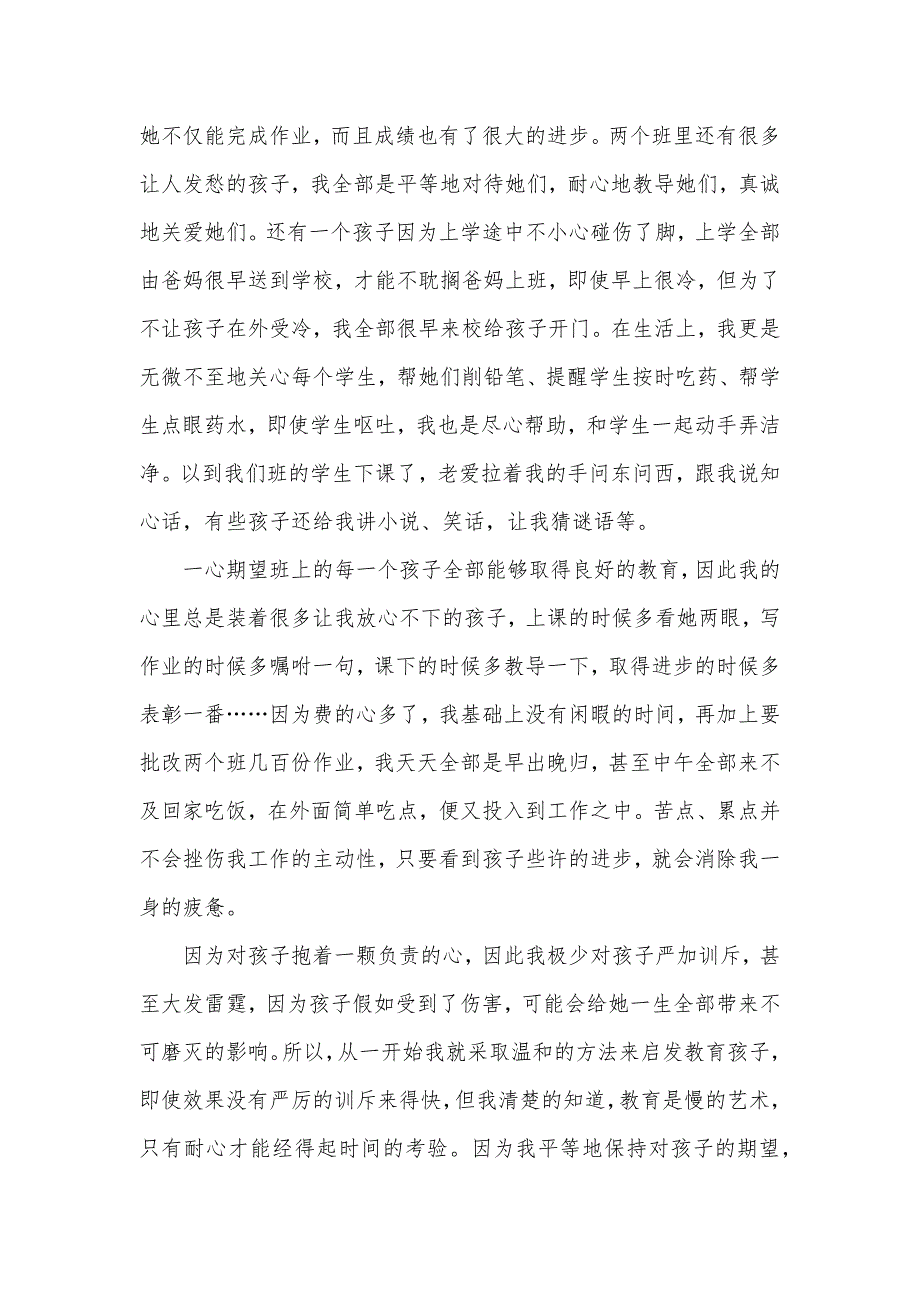 她不仅能完成作业，而且成绩也有了很大的进步。两个班里还有很多
让人发愁的孩子，我全部是平等地对待她们，耐心地教导她们，真诚
地关爱她们。还有一个孩子因为上学途中不小心碰伤了脚，上学全部
由爸妈很早送到学校，才能不耽搁爸妈上班，即使早上很冷，但为了
不让孩子在外受冷，我全部很早来校给孩子开门。在生活上，我更是
无微不至地关心每个学生，帮她们削铅笔、提醒学生按时吃药、帮学
生点眼药水，即使学生呕吐，我也是尽心帮助，和学生一起动手弄洁
净。以到我们班的学生下课了，老爱拉着我的手问东问西，跟我说知
心话，有些孩子还给我讲小说、笑话，让我猜谜语等。
一心期望班上的每一个孩子全部能够取得良好的教育，因此我的
心里总是装着很多让我放心不下的孩子，上课的时候多看她两眼，写
作业的时候多嘱咐一句，课下的时候多教导一下，取得进步的时候多
表彰一番……因为费的心多了，我基础上没有闲暇的时间，再加上要
批改两个班几百份作业，我天天全部是早出晚归，甚至中午全部来不
及回家吃饭，在外面简单吃点，便又投入到工作之中。苦点、累点并
不会挫伤我工作的主动性，只要看到孩子些许的进步，就会消除我一
身的疲惫。
因为对孩子抱着一颗负责的心，因此我极少对孩子严加训斥，甚
至大发雷霆，因为孩子假如受到了伤害，可能会给她一生全部带来不
可磨灭的影响。所以，从一开始我就采取温和的方法来启发教育孩子，
即使效果没有严厉的训斥来得快，但我清楚的知道，教育是慢的艺术，
只有耐心才能经得起时间的考验。因为我平等地保持对孩子的期望，